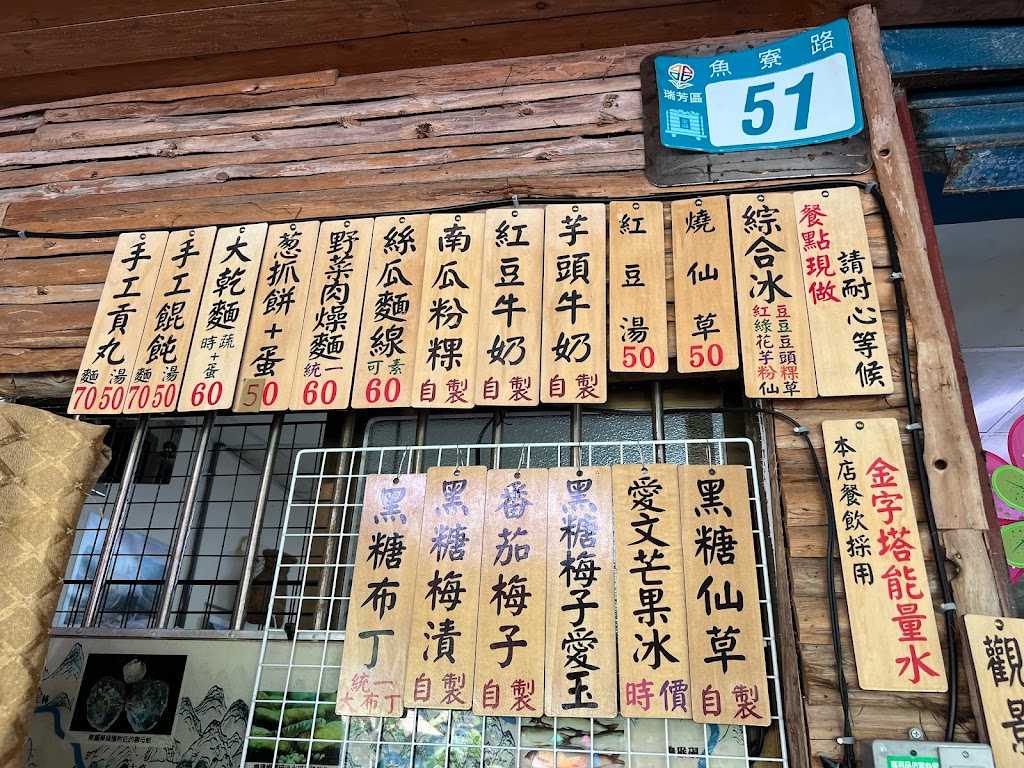 魚寮路
瑞芳區
51
手工貢丸
麵 湯
70 50
手工餛飩
麵 湯
70 50
大乾麵
時蔬+蛋
60
葱抓餅+蛋
50
野菜肉燥麵
統一
60
絲瓜麵線
可素
60
南瓜粉粿
自製
紅豆牛奶
自製
芋頭牛奶
自製
紅豆湯
50
燒仙草
50
綜合冰
紅豆
綠豆
花豆
芋頭
粉粿
仙草
餐點現做
請耐心等候
黑糖布丁
統一
大布丁
黑糖梅漬
自製
番茄梅子
自製
黑糖梅子愛玉
愛文芒果冰
時價
黑糖仙草
自製
本店餐飲採用
金字塔能量水
觀景